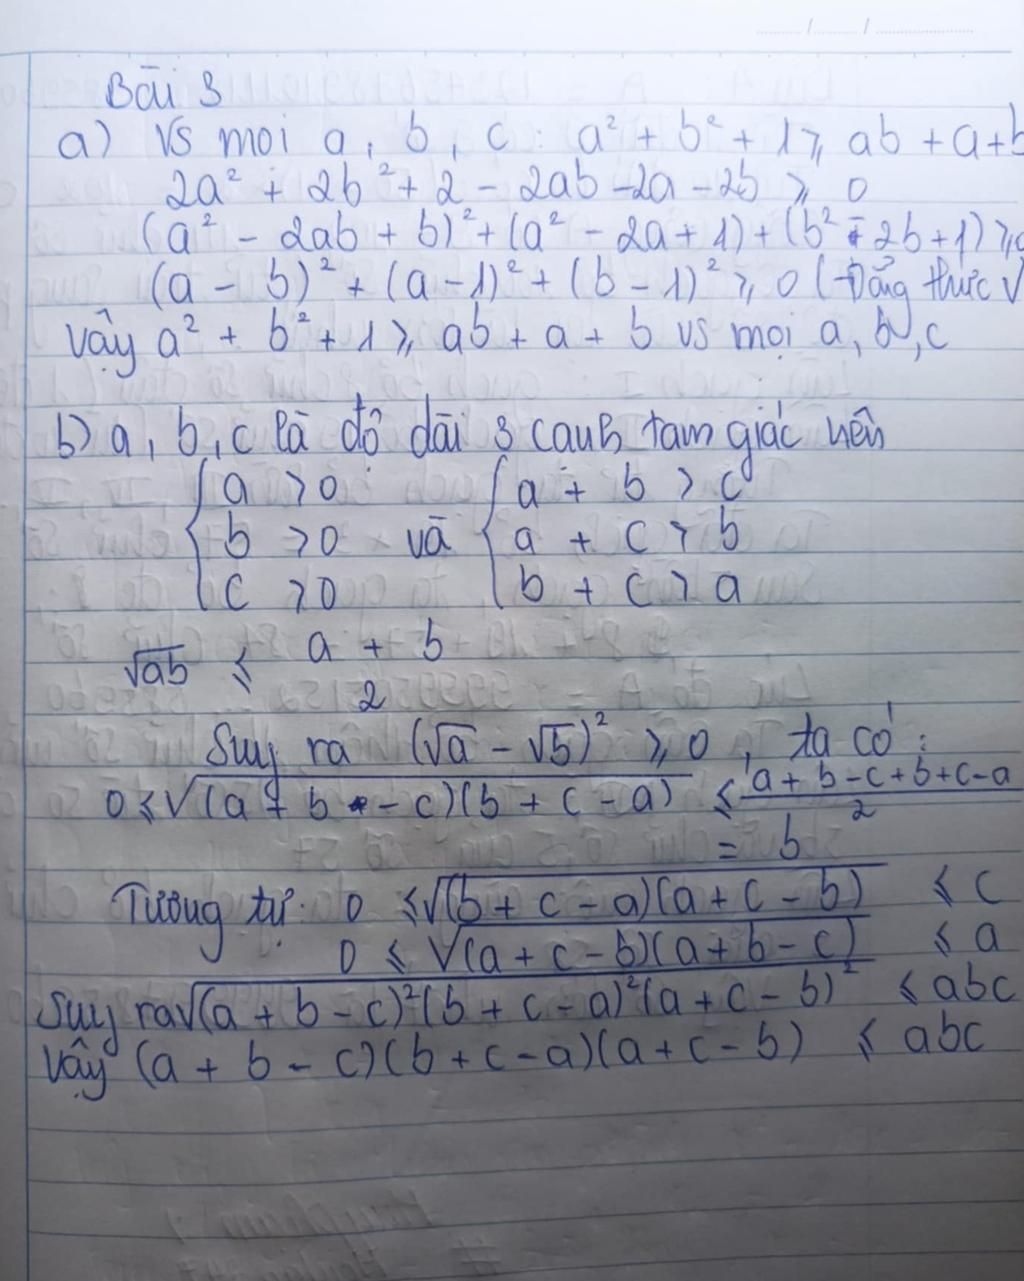 Bài 3
a) Vs moi a, b, c: a² + b² + 1 ≥ ab + a + b
2a² + 2b² + 2 - 2ab - 2a - 2b ≥ 0
(a² - 2ab + b)² + (a² - 2a + 1) + (b² - 2b + 1) ≥ 0
(a - b)² + (a - 1)² + (b - 1)² ≥ 0 (Đẳng thức
Vậy a² + b² + 1 ≥ ab + a + b vs mọi a, b, c
b) a, b, c là độ dài 3 cạnh tam giác nên
a > 0 a + b > c
b > 0 và a + c > b
c > 0 b + c > a
√ab ≤ a + b
2
Suy ra (√a - √b)² ≥ 0, ta có:
0 ≤ √(a + b - c)(b + c - a) ≤ a + b - c + b + c - a
2
= b
Tương tự: 0 ≤ √(b + c - a)(a + c - b) ≤ c
0 ≤ √(a + c - b)(a + b - c) ≤ a
Suy ra √(a + b - c)²(b + c - a)²(a + c - b)² ≤ abc
Vậy (a + b - c)(b + c - a)(a + c - b) ≤ abc